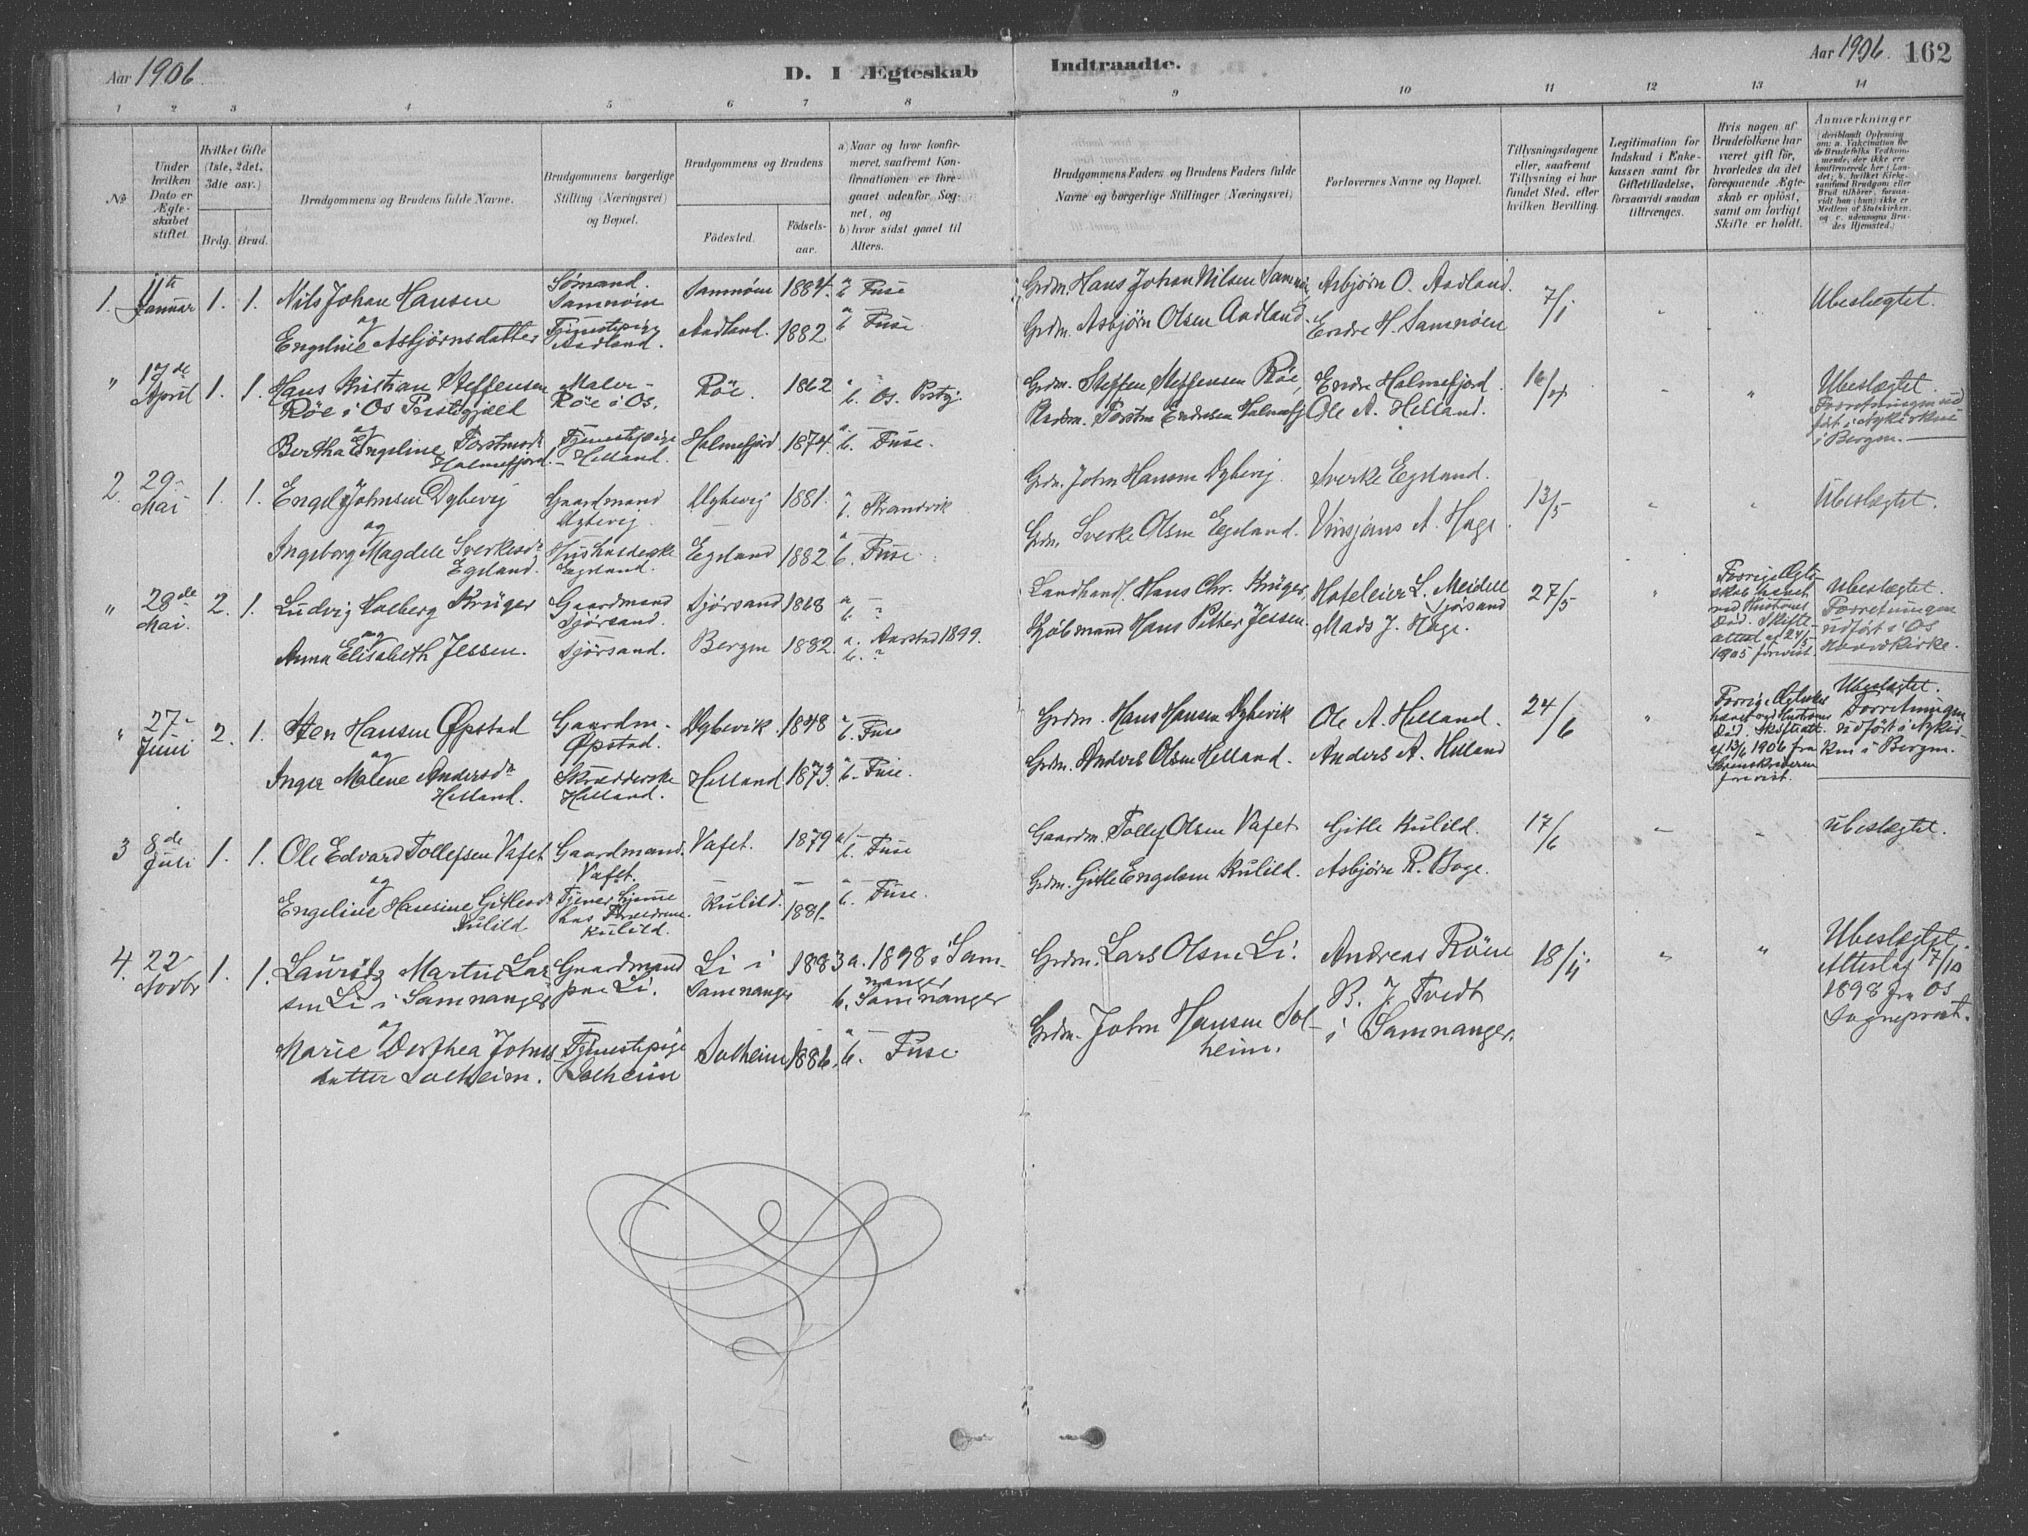 Aar 1906.
D. I Ægteskab Indtraadte.
Aar 1906. 162
1 2 3 4 5 6 7 8 9 10 11 12 13 14
No
Under hvilken Dato er Ægteskabet stiftet.
Hvilket Gifte (1ste, 2det, 3die osv.)
Brdg. Brud.
Brudgommens og Brudens fulde Navne.
Brudgommens borgerlige Stilling (Næringsvei) og Bopæl.
Brudgommens og Brudens
Fødested. Fødselsaar.
a) Naar og hvor konfirmeret, saafremt Konfirmationen er foregaaet udenfor Sognet, og
b) hvor sidst gaaet til Alters.
Brudgommens Faders og Brudens Faders fulde Navne og borgerlige Stillinger (Næringsvei)
Forlovernes Navne og Bopæl.
Tillysningsdagene eller, saafremt Tillysning ei har fundet Sted, efter hvilken Bevilling.
Legitimation for Indskud i Enkekassen samt for Giftetilladelse, forsaavidt saadan tiltrænges.
Hvis nogen af Brudefolkene har været gift før, hvorledes da det foregaaende Ægteskab er opløst, samt om lovligt Skifte er holdt.
Anmærkninger
(deriblandt Oplysning om: a. Vakcination for de Brudefolks Vedkommende, der ikke ere konfirmerede her i Landet; b. hvilket Kirkesamfund Brudgom eller Brud tilhører, forsaavidt han (hun) ikke er Medlem af Statskirken, og c. udensogns Brudes Hjemsted.)
1. 11te Januar 1. 1. Nils Johan Hansen
og
Engeline Asbjørnsdatter
Sømand. Samnøen
Tjenestepige Aadland.
Samnøen 1884. b. Fuse
Aadland. 1882. b. Fuse.
Grdm. Hans Johan Nilsen
Grdm. Asbjørn Olsen Aadland.
Asbjørn O. Aadland.
Endre H. Samnøen
7/1
Ubeslægtet.
" 17de April 1. 1. Hans Kristian Steffensen
Røe i Os Prestegjæld
og
Bertha Engeline
Holmefjord.
Maler - Røe i Os.
Tjenestepige - Helland.
Røe. 1862 b. Os. Prstgj.
Holmefjord 1874. b. Fuse.
Grdm. Steffen Steffensen Røe,
Endre Holmefjord.
Ole A. Helland.
Ubeslægtet.
Forretningen udført i Nykirken i Bergen.
2. 29- Mai 1. 1. Engel Johnsen Dybevig
og
Ingeborg Magdele Sverkesdr
Egeland.
Gaardmand Dybevig.
Egeland.
Dybevig 1881. b. Strandvik
Egeland 1882 b. Fuse.
Grdm. John Hansen Dybevig.
Grdm. Sverke Olsen Egeland.
Sverke Egeland.
Vinsjans A. Hage
13/5
Ubeslægtet.
" 28de Mai. 2. 1. Ludvig Holberg Krüger
og
Anna Elisabeth Jessen.
Gaardmand Sjørsand.
Sjørsand.
Sjørsand 1868 a - b. ?
Bergen 1882. a. Aarstad 1899. b. ?
Landhandl. Hans Chr. Krüger,
Kjøbmand Hans Petter Jessen.
Hoteleier L. Meidell Sjøsand
Mads J. Hage.
27/5
Forrige Ægteskab hævet ved Hustrues Død. Skifteattest af 24/5 1905 forevist.
Ubeslægtet.
Forretningen udført i Os Hovedkirke.
" 27- Juni 2. 1. Sten Hansen Øpstad
og
Inger Malene Andersdr
Helland.
Gaardm- Øpstad.
Skrædderske Helland.
Dybevik. 1848 b. Fuse
Helland 1873. b. Fuse.
Grdm. Hans Hansen Dybevik
Grdm. Anders Olsen Helland.
Ole A. Helland.
Anders A. Helland
24/6
Forrige Ægteskab hævet ved Hustrues Død. Skifteatt. af 13/6 1906 fra Sorenskriveren forevist.
Ubeslægtet.
Forretningen udført i Nykirken i Bergen.
3 8de Juli 1. 1. Ole Edvard Tollefsen Vafet
og
Engeline Hansine Gitlesdr
Kulild
Gaardmand. Vafet.
Tjener hjemme hos Forældrene. Kulild.
Vafet. 1879 a/- b. Fuse
Kulild. 1881. b. Fuse.
Gaardm. Tollef Olsen Vafet
Grdm. Gitle Engelsen Kulild.
Gitle Kulild.
Asbjørn R. Boge.
17/6
ubeslægtet.
4. 22 Novbr 1. 1. Lauritz Martin Larsen Li i Samnanger
og
Marie Dorthea Johns
datter Solheim.
Gaardmand paa Li.
Tjenestepige Solheim
Li i Samnanger 1883 a. 1898 i Samnanger b. Samnanger
Solheim 1886. b. Fuse
Grdm. Lars Olsen Li.
Grdm. John Hansen Solheim.
Andreas Røen
B. J. Tvedt
i Samnanger.
18/11
Ubeslægtet.
Attest af 7/10 1898 fra Os Sogneprest.